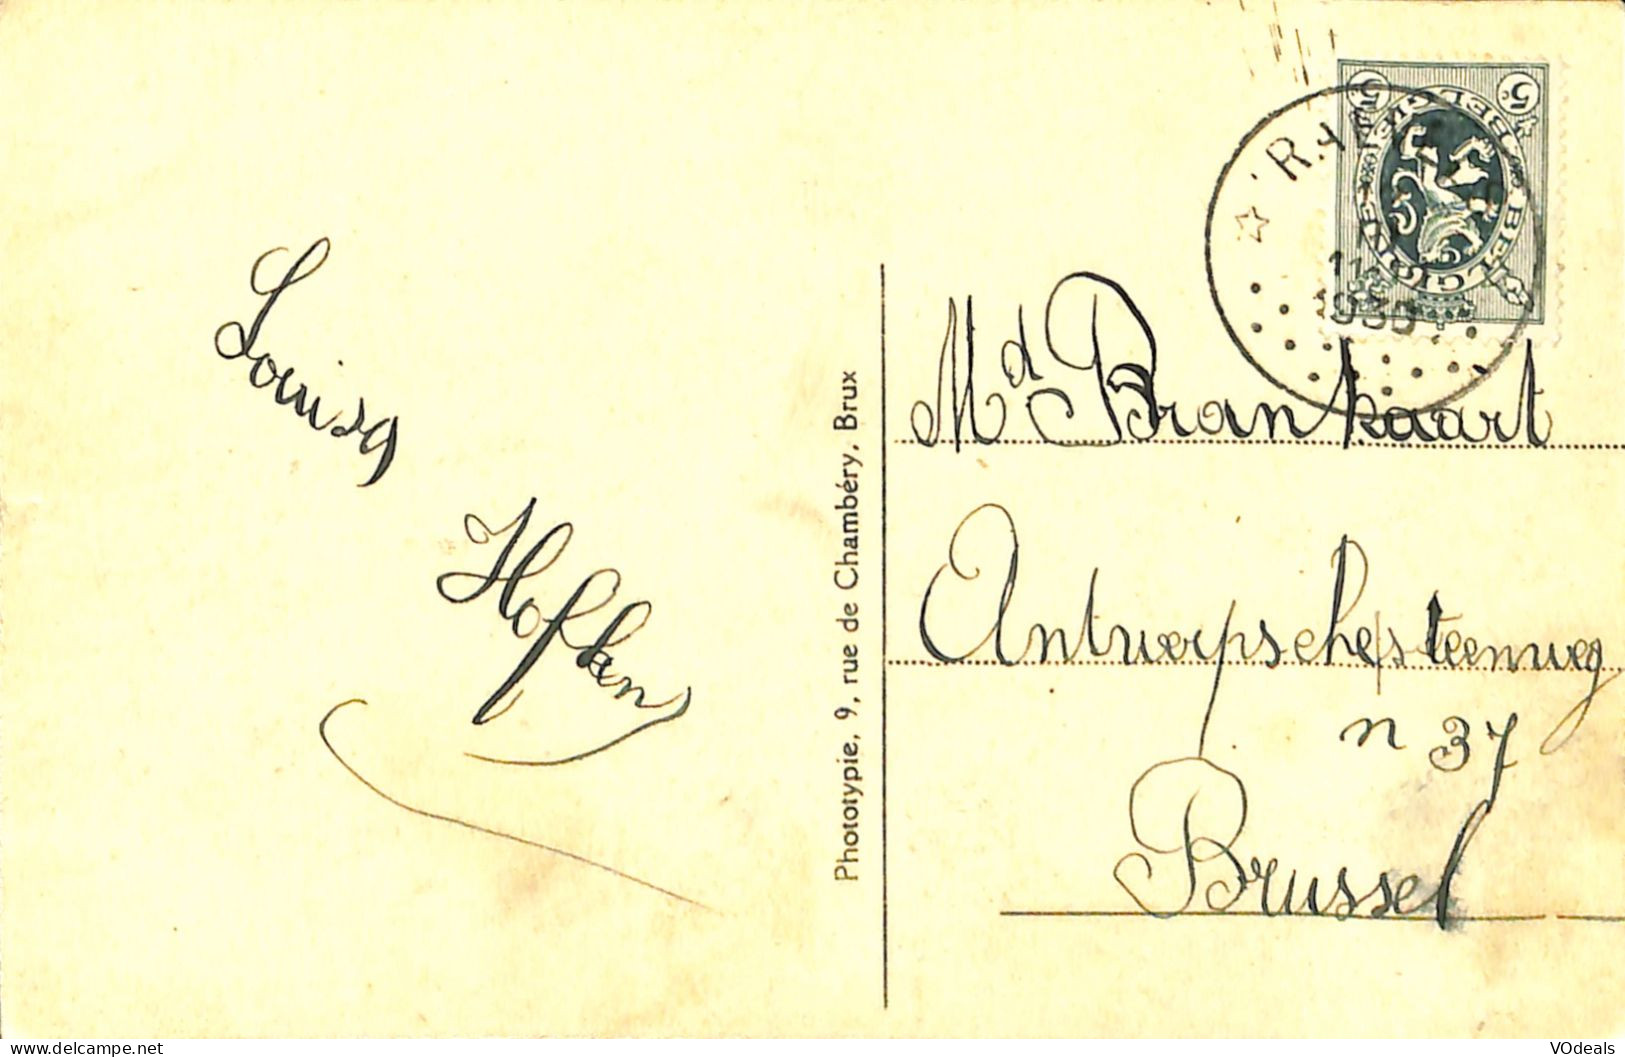 Louisa
Hofken
Photorypie, 9, rue de Chambéry, Brux
5c 5c
BELGIQUE BELGIE
1930
Md Brankaart
Antwerpschesteenweg
n 37
Brussel
delcampe.net
VOdeals